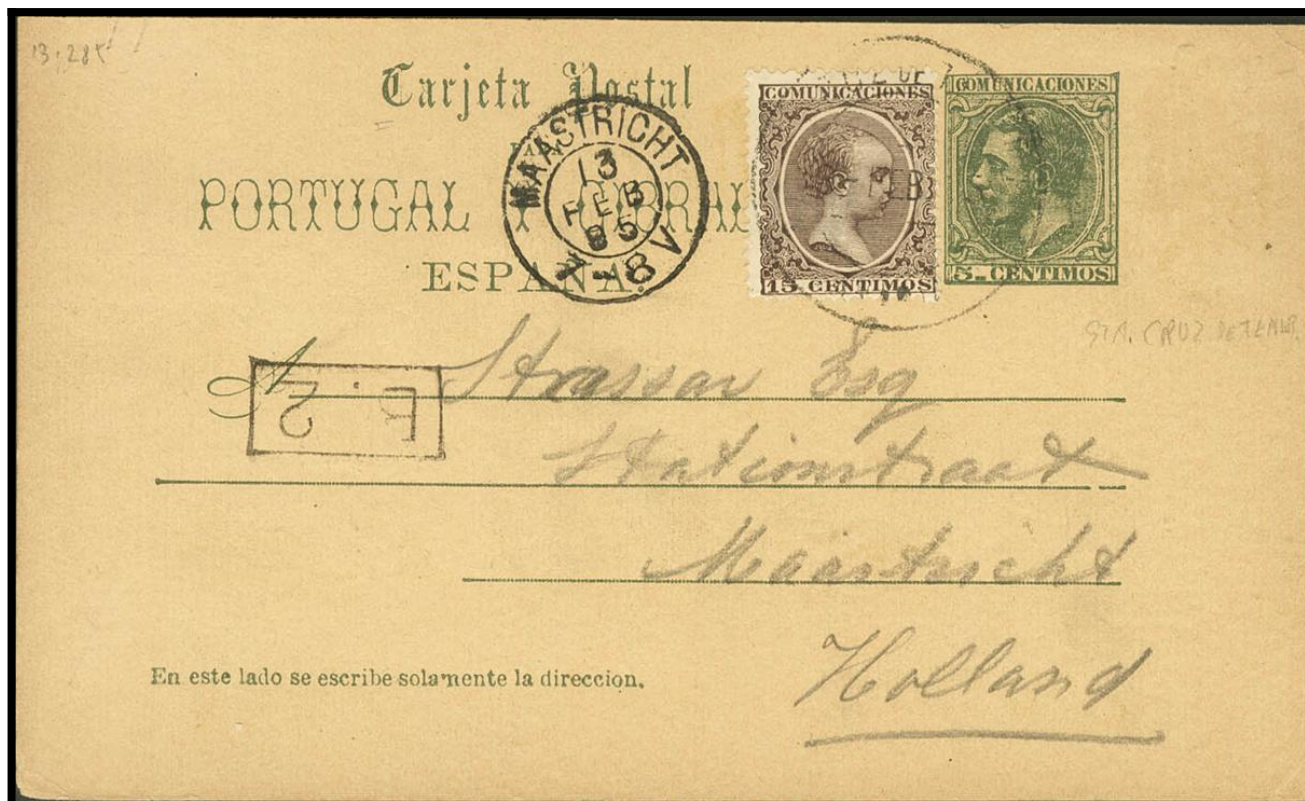 13.285
Tarjeta Postal
PARA
PORTUGAL Y GIBRAL
ESPAÑA.
MAASTRICHT
13
FEB
95
7-8 V
COMUNICACIONES
15 CENTIMOS
FEB
COMUNICACIONES
5 CENTIMOS
STA. CRUZ DE TENER.
A
E.
2
Strassar Esq
Stationstraat
Maastricht
Holland
En este lado se escribe solamente la direccion.